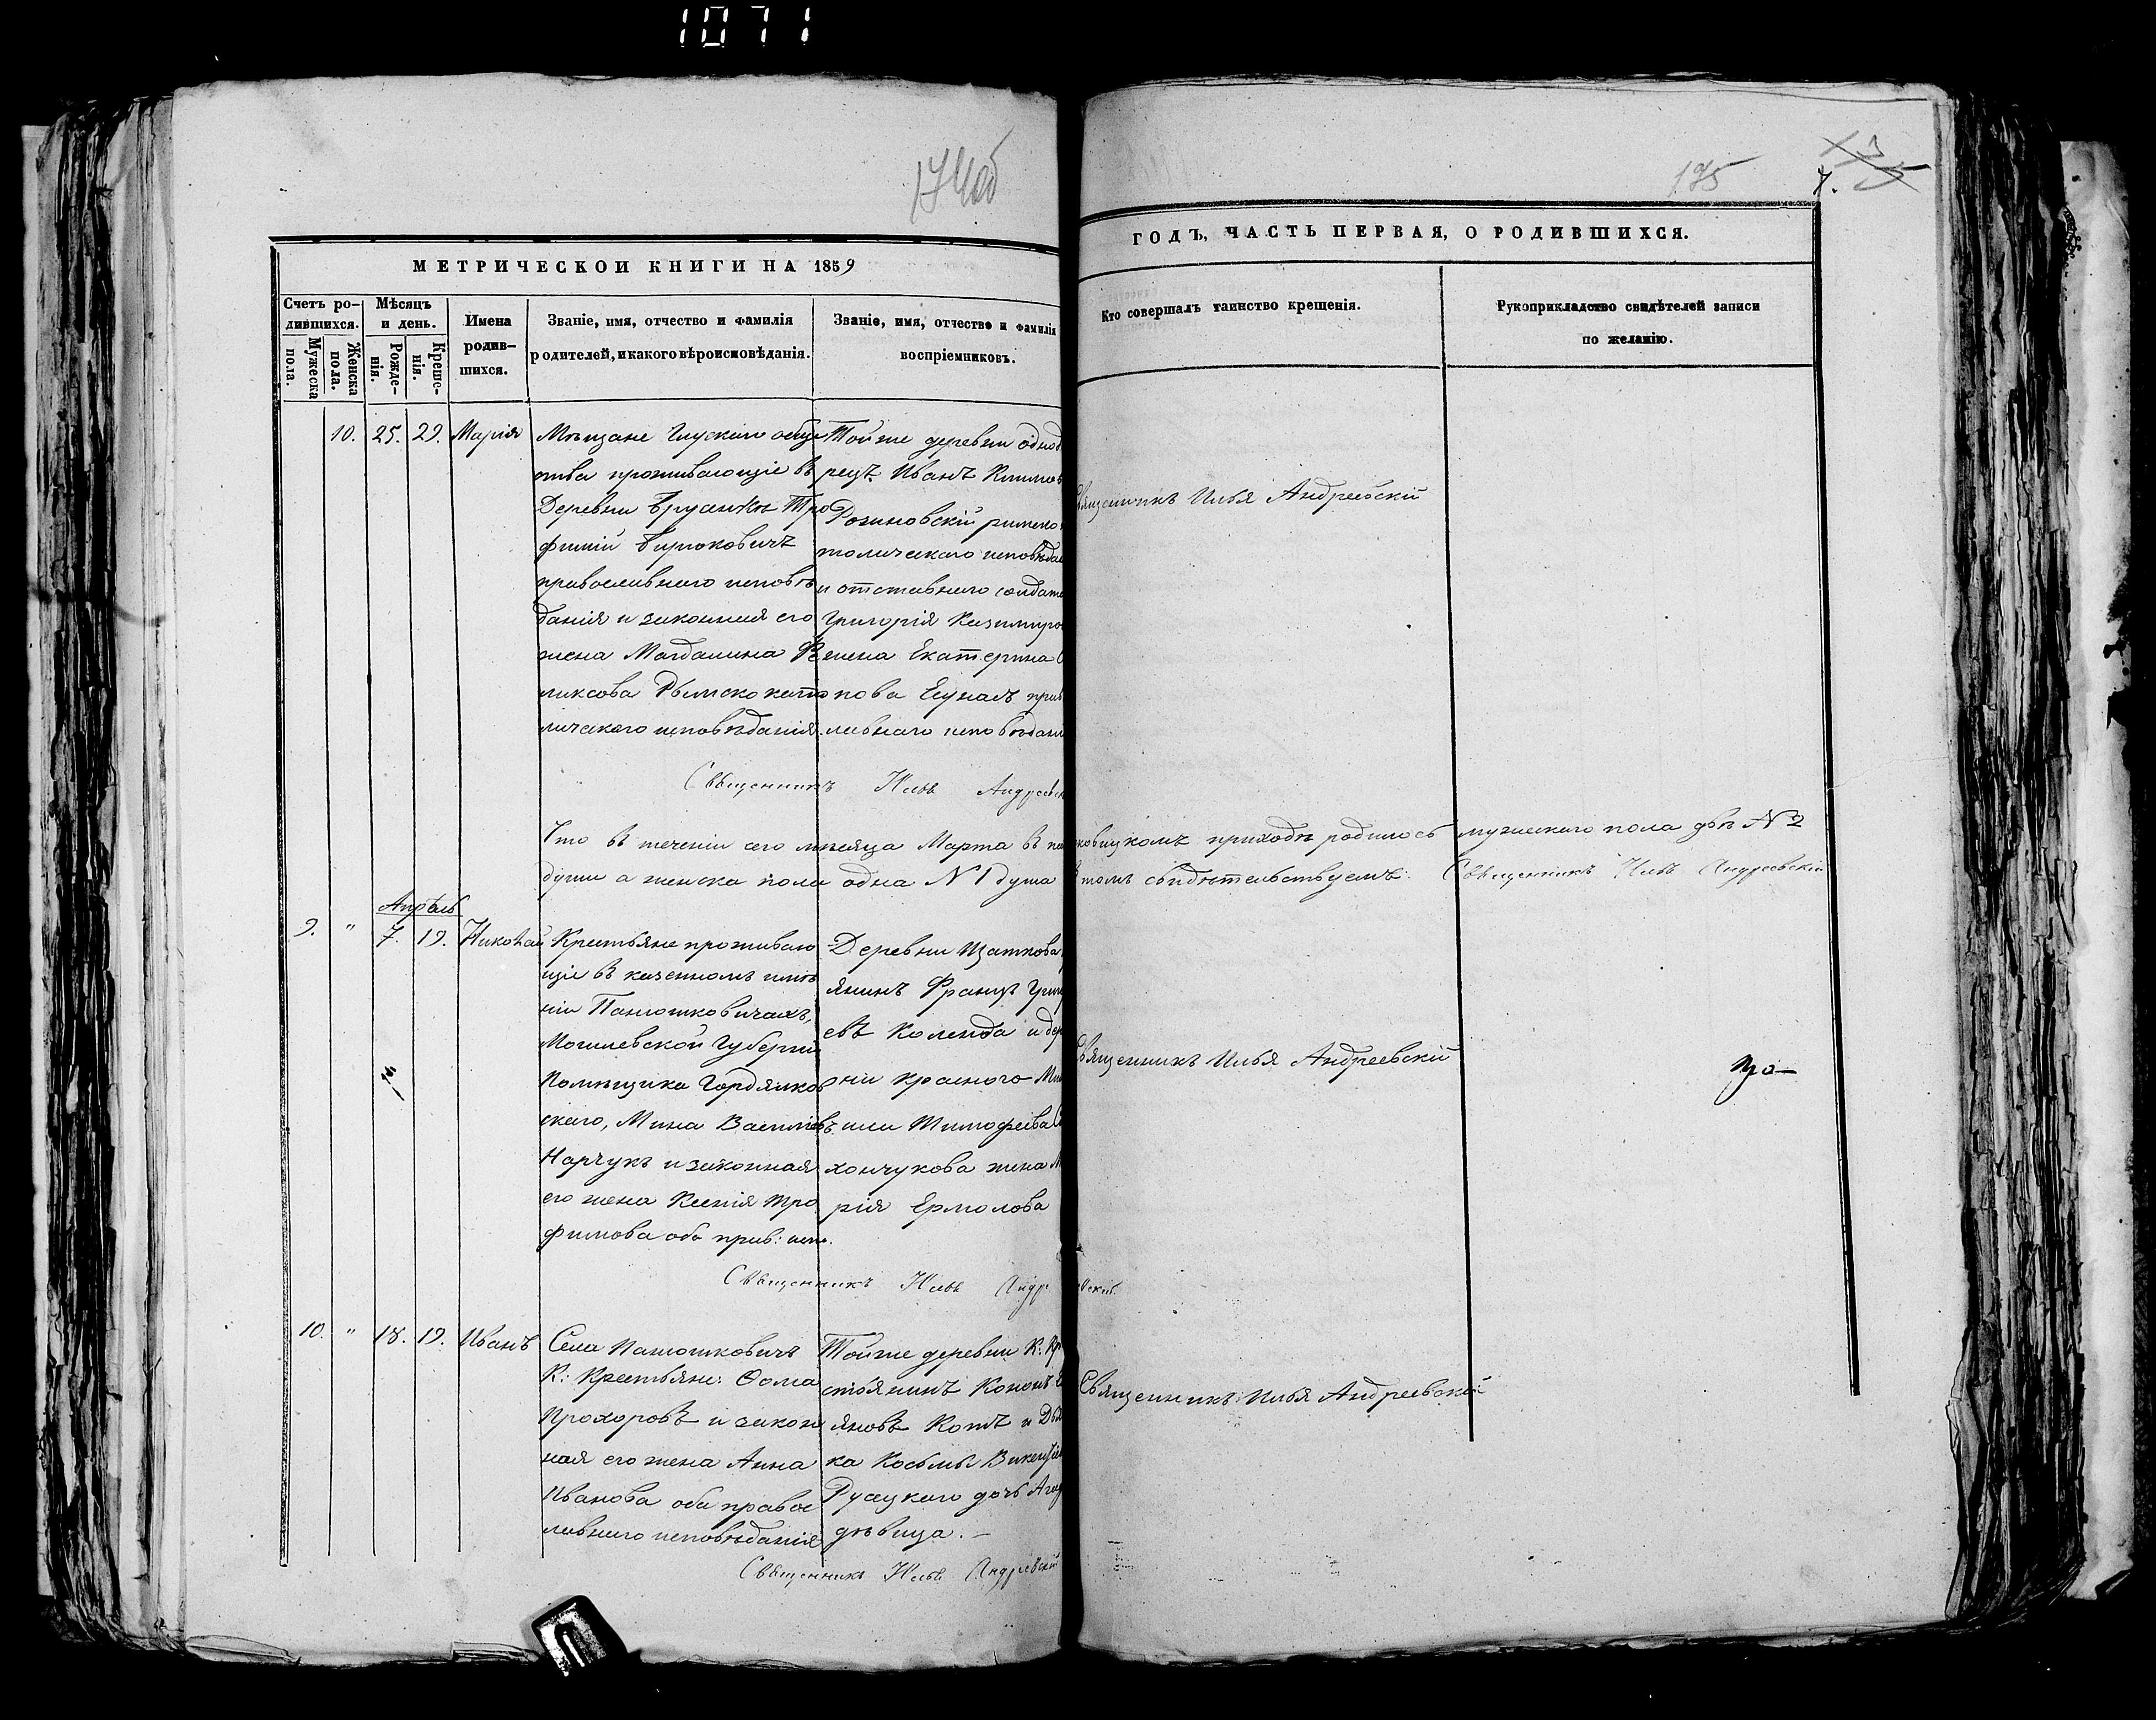 1071
174об
175
7.
МЕТРИЧЕСКОЙ КНИГИ НА 1859
ГОДЪ, ЧАСТЬ ПЕРВАЯ, О РОДИВШИХСЯ.
Счетъ ро-
дившихся.
Мужеска
пола.
Женска
пола.
Мѣсяцъ
и день.
Рожде-
нія.
Креще-
нія.
Имена
родив-
шихся.
Званіе, имя, отчество и фамилія
родителей, и какого вѣроисповѣданія.
Званіе, имя, отчество и фамилія
воспріемниковъ.
Кто совершалъ таинство крещенія.
Рукоприкладство свидѣтелей записи
по желанію.
10. 25. 29. Марія
Мѣщане Глускаго обще
ства проживающіе въ
Деревни
фимій Бирюковичъ
православнаго исповѣ
данія и законная его
жена Магдалина Фе
ликсова Рымскокато
лическаго исповѣданія.
Тойже деревни однод
рецъ Иванъ Климов
Розиновскій римско
толическаго исповѣда
и отставнаго солдата
Григорія Казимиро
жена Екатерина
пова прав
лавнаго исповѣдані
Священникъ Илья Андреевскій
Священникъ Илья Андреевск
Что въ теченіи сего мѣсяца Марта въ па
ковицкомъ приходѣ родилось мужескаго пола двѣ № 2
души а женска пола одна № 1 душа
томъ свидѣтельствуемъ: Священникъ Илья Андреевскій
Апрѣль
9. " 7. 19. Николай
Крестьяне проживаю
щіе въ казенномъ имѣ
ніи Панюшковичахъ,
Могилевской Губерніи
Помѣщика
скаго, Мина Васильевъ
Нарчукъ и законная
его жена Ксенія Тро
фимова оба прав: испо.
Деревни Шаткова
янинъ Францъ Григ
евъ Коленда и дер
ни Краснаго
или Тимофеева
хончукова жена М
рія Ермолова
Священникъ Илья Андреевскій
Священникъ Илья Андр вскій
10. " 18. 19. Иванъ
Села Панюшковичъ
К: Крестьяне: Ѳома
Прохоровъ и закон
ная его жена Анна
Иванова оба правос
лавнаго исповѣданія
Тойже деревни К: Кр
стьянинъ Кононъ
яновъ Котъ и
ка Косьмы Викентіе
Русецкаго дочь Ага
дѣвица. –
Священникъ Илья Андреевскій
Священникъ Илья Андреевскій